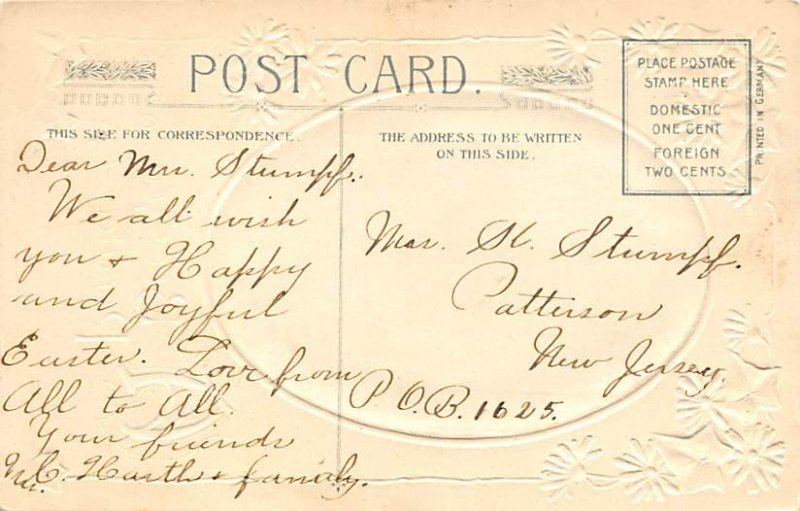 POST CARD.
PLACE POSTAGE
STAMP HERE
DOMESTIC
ONE CENT
FOREIGN
TWO CENTS
PRINTED IN GERMANY
THIS SIDE FOR CORRESPONDENCE.
Dear Mrs. Stumpf.
We all wish
you + Happy
and Joyful
Easter. Love from
All to All.
Your friends
C. Harth + family.
THE ADDRESS TO BE WRITTEN
ON THIS SIDE.
Mrs. St. Stumpf.
Patterson
New Jersey.
P.O.B. 1625.